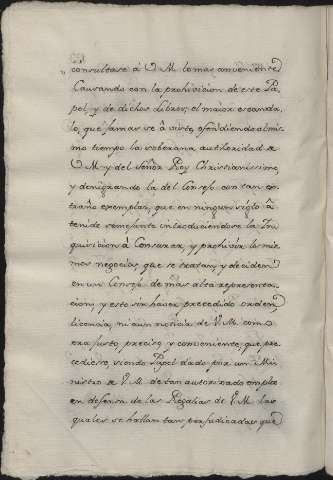 consultase à V M lo mas conveniente
Causando con la prohivicion de este Pa-
pel y de dichos Libros, el maior escanda-
lo, que jamas se à visto, ofendiendo al mis-
mo tiempo la soberana authoridad a
V M y del Señor Rey Christianissimo
y denigrando la del Consejo con tan ex-
traño exemplar, que en ningun siglo à
tenido semejante introduciendose la In-
quisicion à Censurar, y prohivir los mis-
mos negocios, que se tratan, y deciden
en un Consejo de mas alta representa-
cion, y esto sin haver precedido orden,
licencia, ni aun noticia de V. M. com
era justo, preciso, y combeniente, que pre-
cediese, siendo Papel dado por un Mi-
nistro a V. M. de tan autorizado empleo
en defensa de las Regalias de V. M. las
quales se hallan tan perjudicadas que